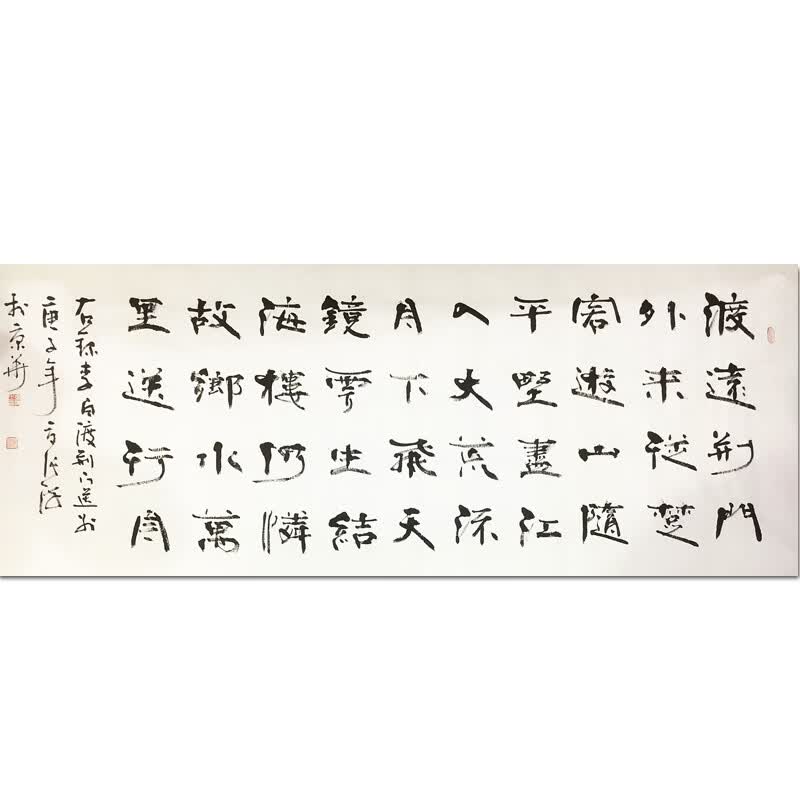 渡遠荆門
外来從楚
客遊山隨
平野盡江
入大荒流
月下飛天
鏡雲生結
海樓仍憐
故鄉水萬
里送行舟
右録李白渡荆門送别
庚子年
於京華